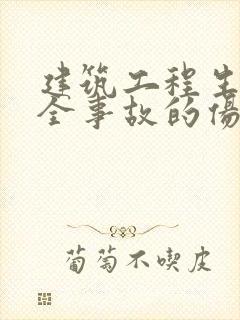 建筑工程生
全事故的伤
葡萄不喫皮